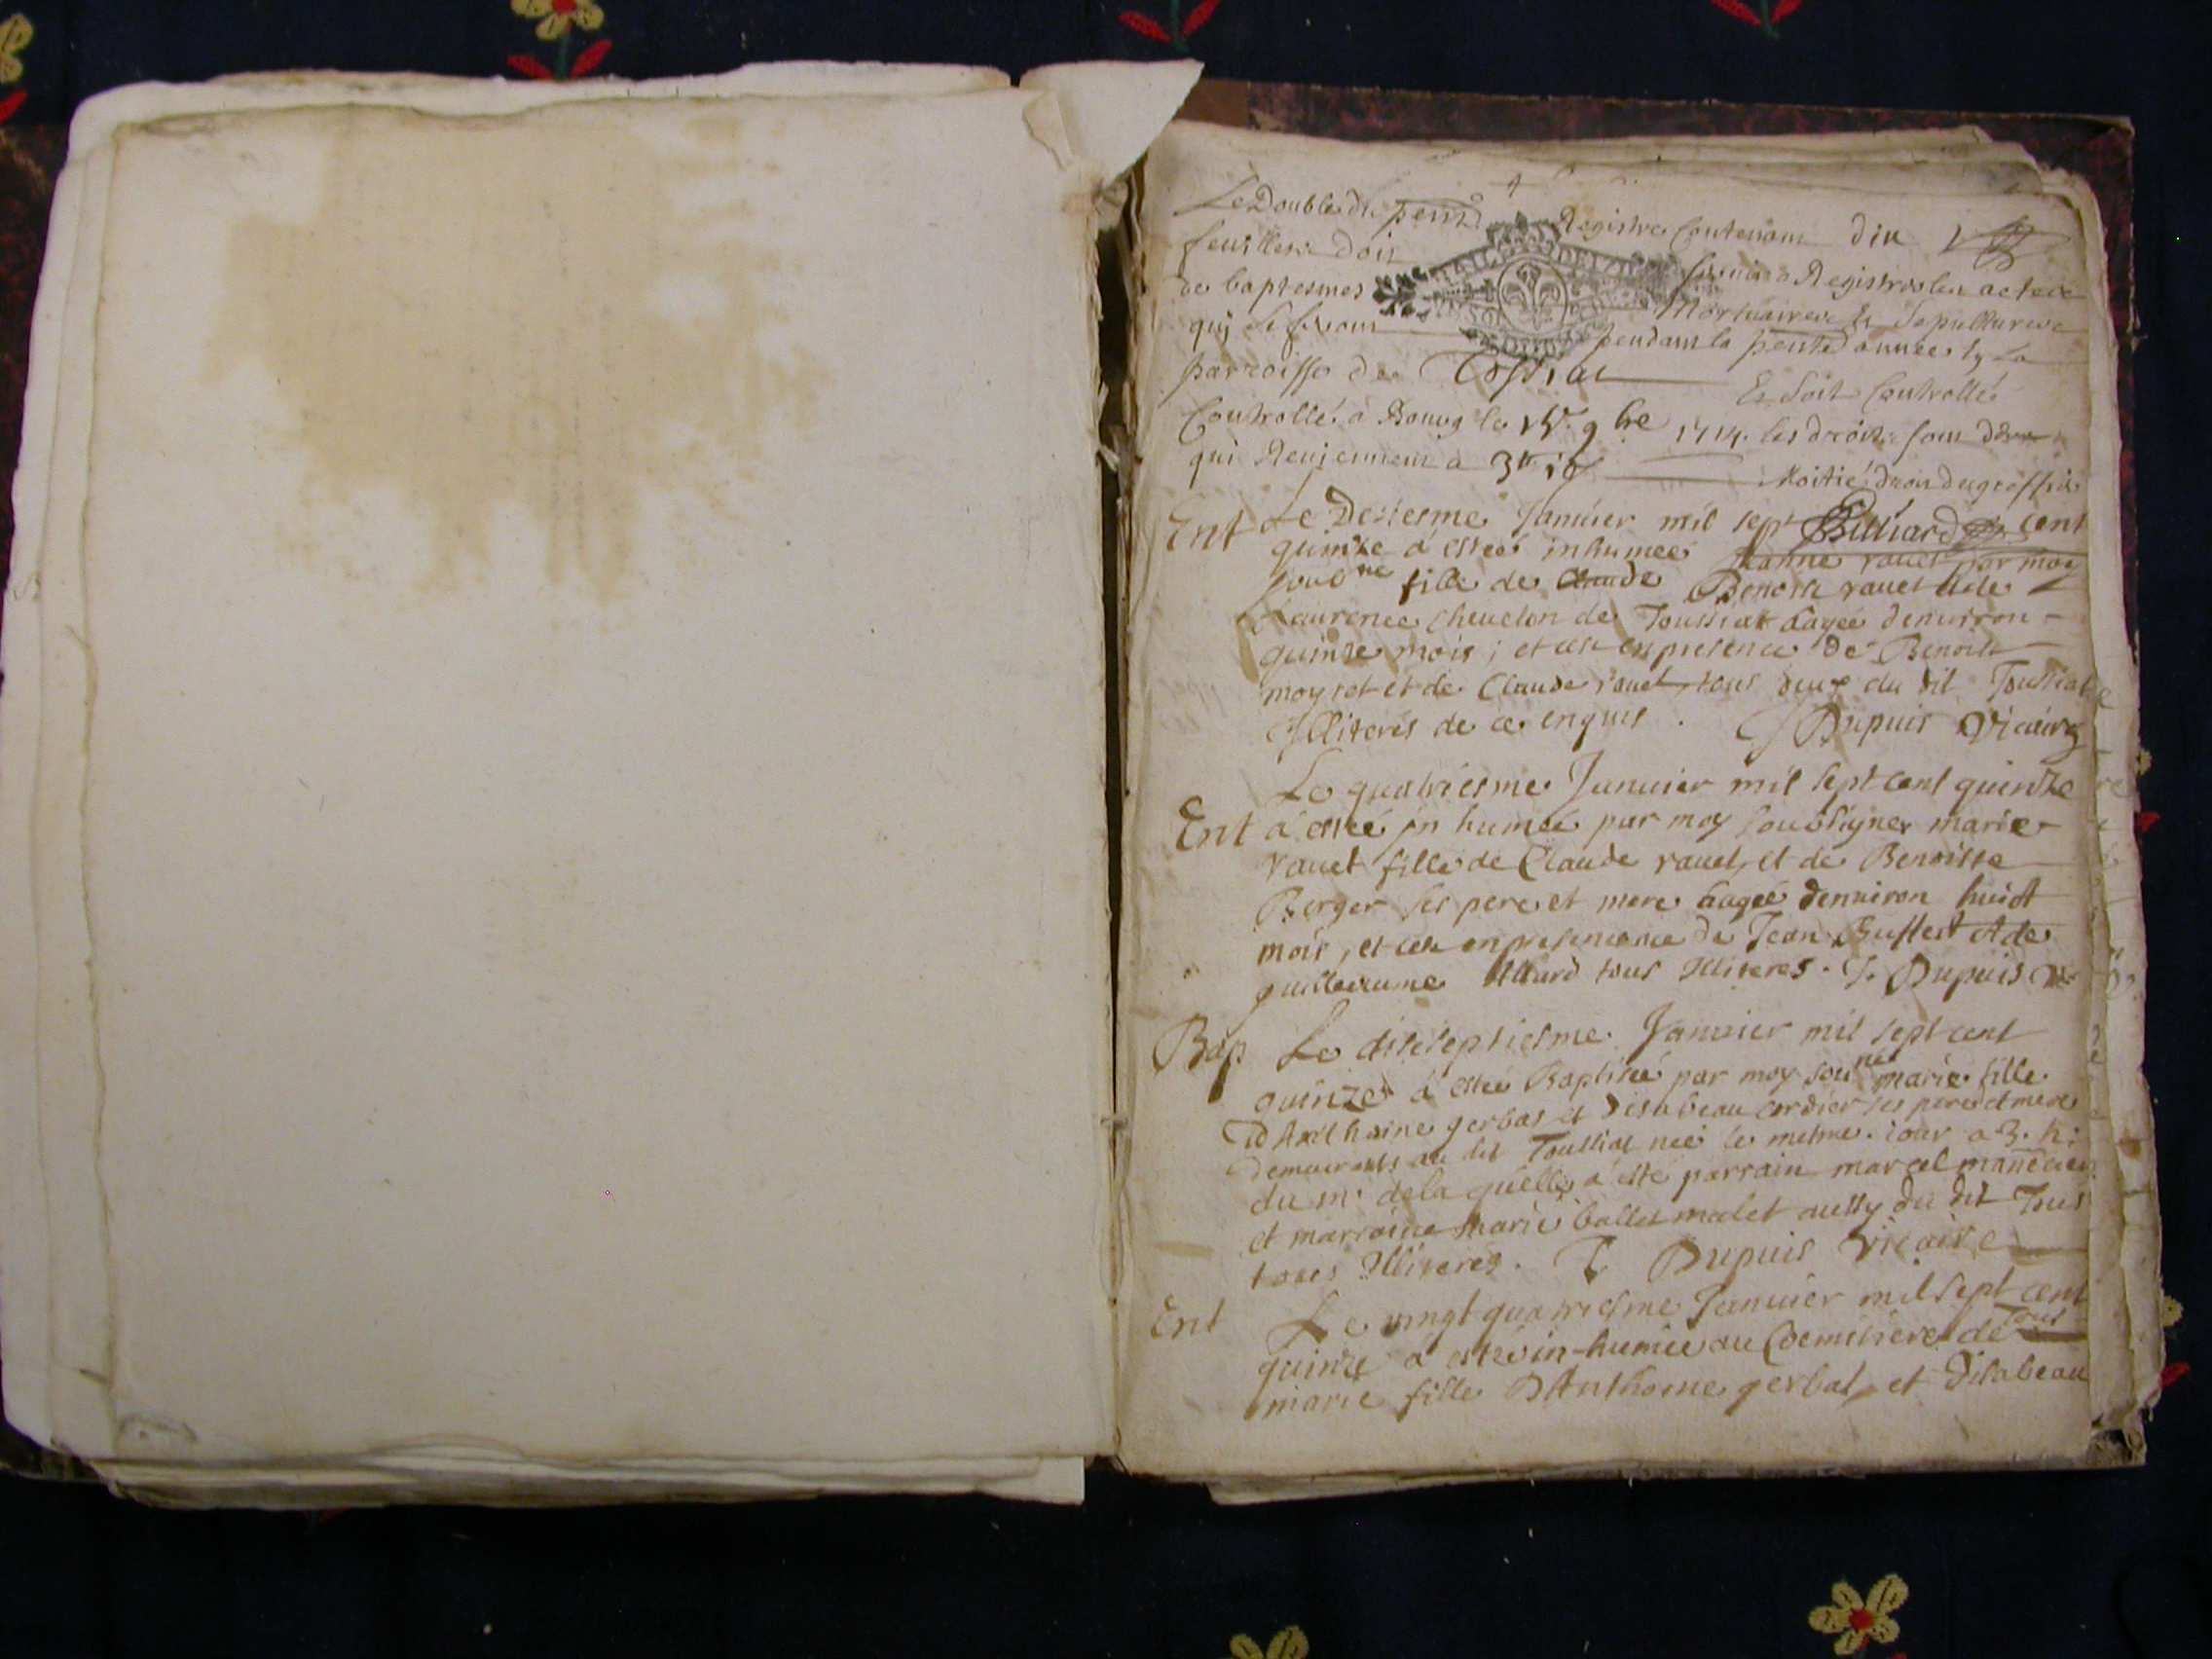 Le Double du pent Registre Contenant dix
feuillets doit servir a Registrer les actes
de baptesmes Mortuaires Et Sepultures
qui se feront pendant la pente année En La
parroisse de Tossiat Et Soit Controllé
Controllé a Bourg le 9bre 1714. les droits sont
qui Reviennent a 3tt
Moitié droit du greffier
Billiard
Ent Le Desiesme Januier mil sept cent
quinze a esteé inhumeé Jeanne rauet par moy
soubne fille de Claude Benoist rauet et de
Laurence cheuelon de Toussiat aagée denuiron
quinze mois ; et ce en presence de Benoist
moyret et de Claude rauet tous deux du dit Toussiat
Illiterés de ce enquis . J Dupuis Vicaire
Le quatriesme Januier mil sept cent quinze
Ent a esteé in humeé par moy soubsigner marie
rauet fille de Claude rauet, et de Benoiste
Berger ses pere et mere aageé denuiron huict
mois, et ce en presence de Jean Buffest et de
guilleaume Alliard tous Illiteres. J. Dupuis
Bap Le diseseptiesme Januier mil sept cent
quinze a esteé Baptiseé par moy soune marie fille
d Anthoine gerbas et disabeau cordier ses pere et mere
demeurants au dit Toussiat neé le mesme iour a 3. h:
du m. de la quelle a esté parrain marcel
et marraine marie ballet mulet aussy du dit Tous
tous Illiteres. J Dupuis vicaire
Ent Le vingt quatriesme Januier mil sept cent
quinze a esteé in-humeé au Coemitiere de Tous
marie fille d Anthoine gerbas, et disabeau